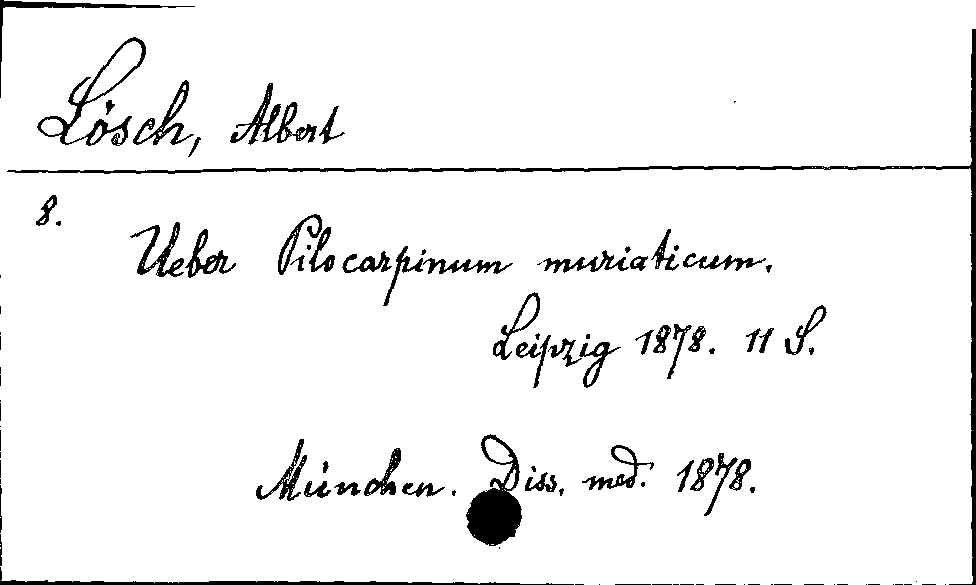 Lösch, Albert
8.
Ueber Pilocarpinum muriaticum.
Leipzig 1878. 11 S.
München. Diss. med. 1878.